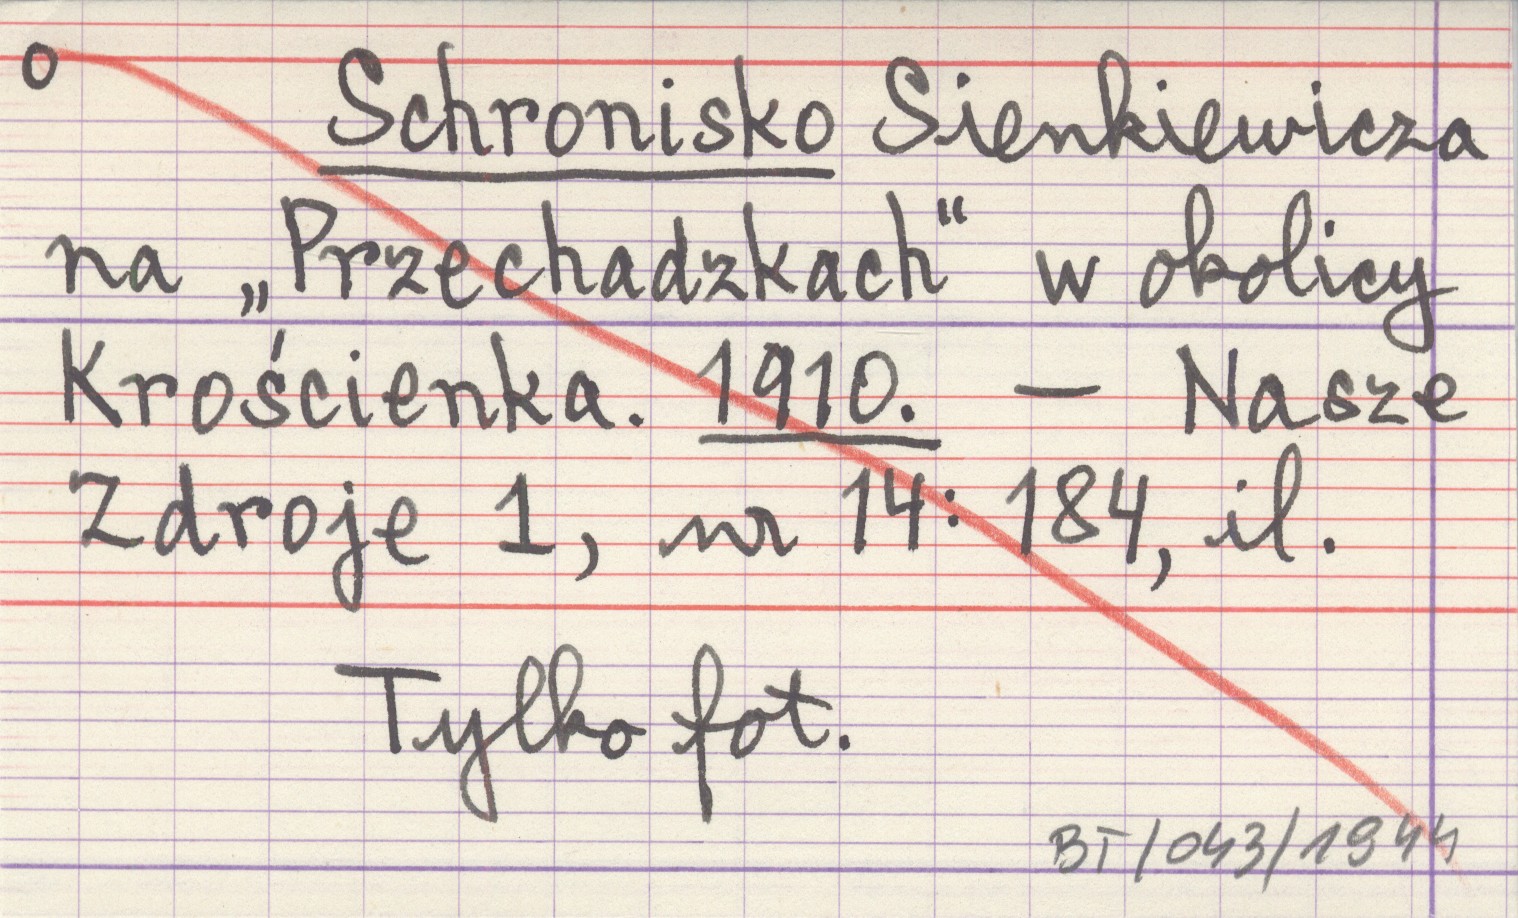 o Schronisko Sienkiewicza
na „Przechadzkach“ w okolicy
Krościenka. 1910. — Nasze
Zdroje 1, nr 14: 184, il.
Tylko fot.
BT/043/1944